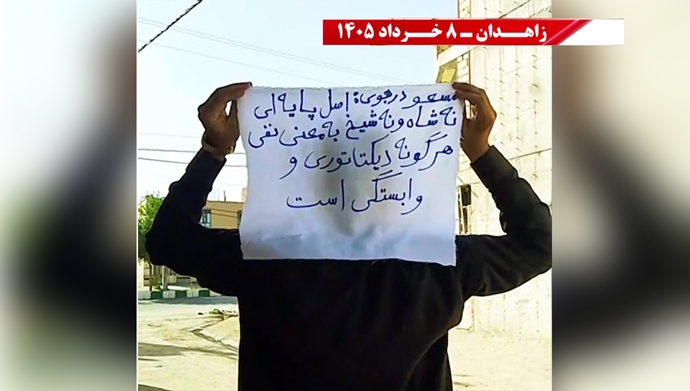 زاهدان - ۸ خرداد ۱۴۰۵
مسعود رجوی: اصل پایه‌ای
نه شاه و نه شیخ به معنی نفی
هرگونه دیکتاتوری و
وابستگی است